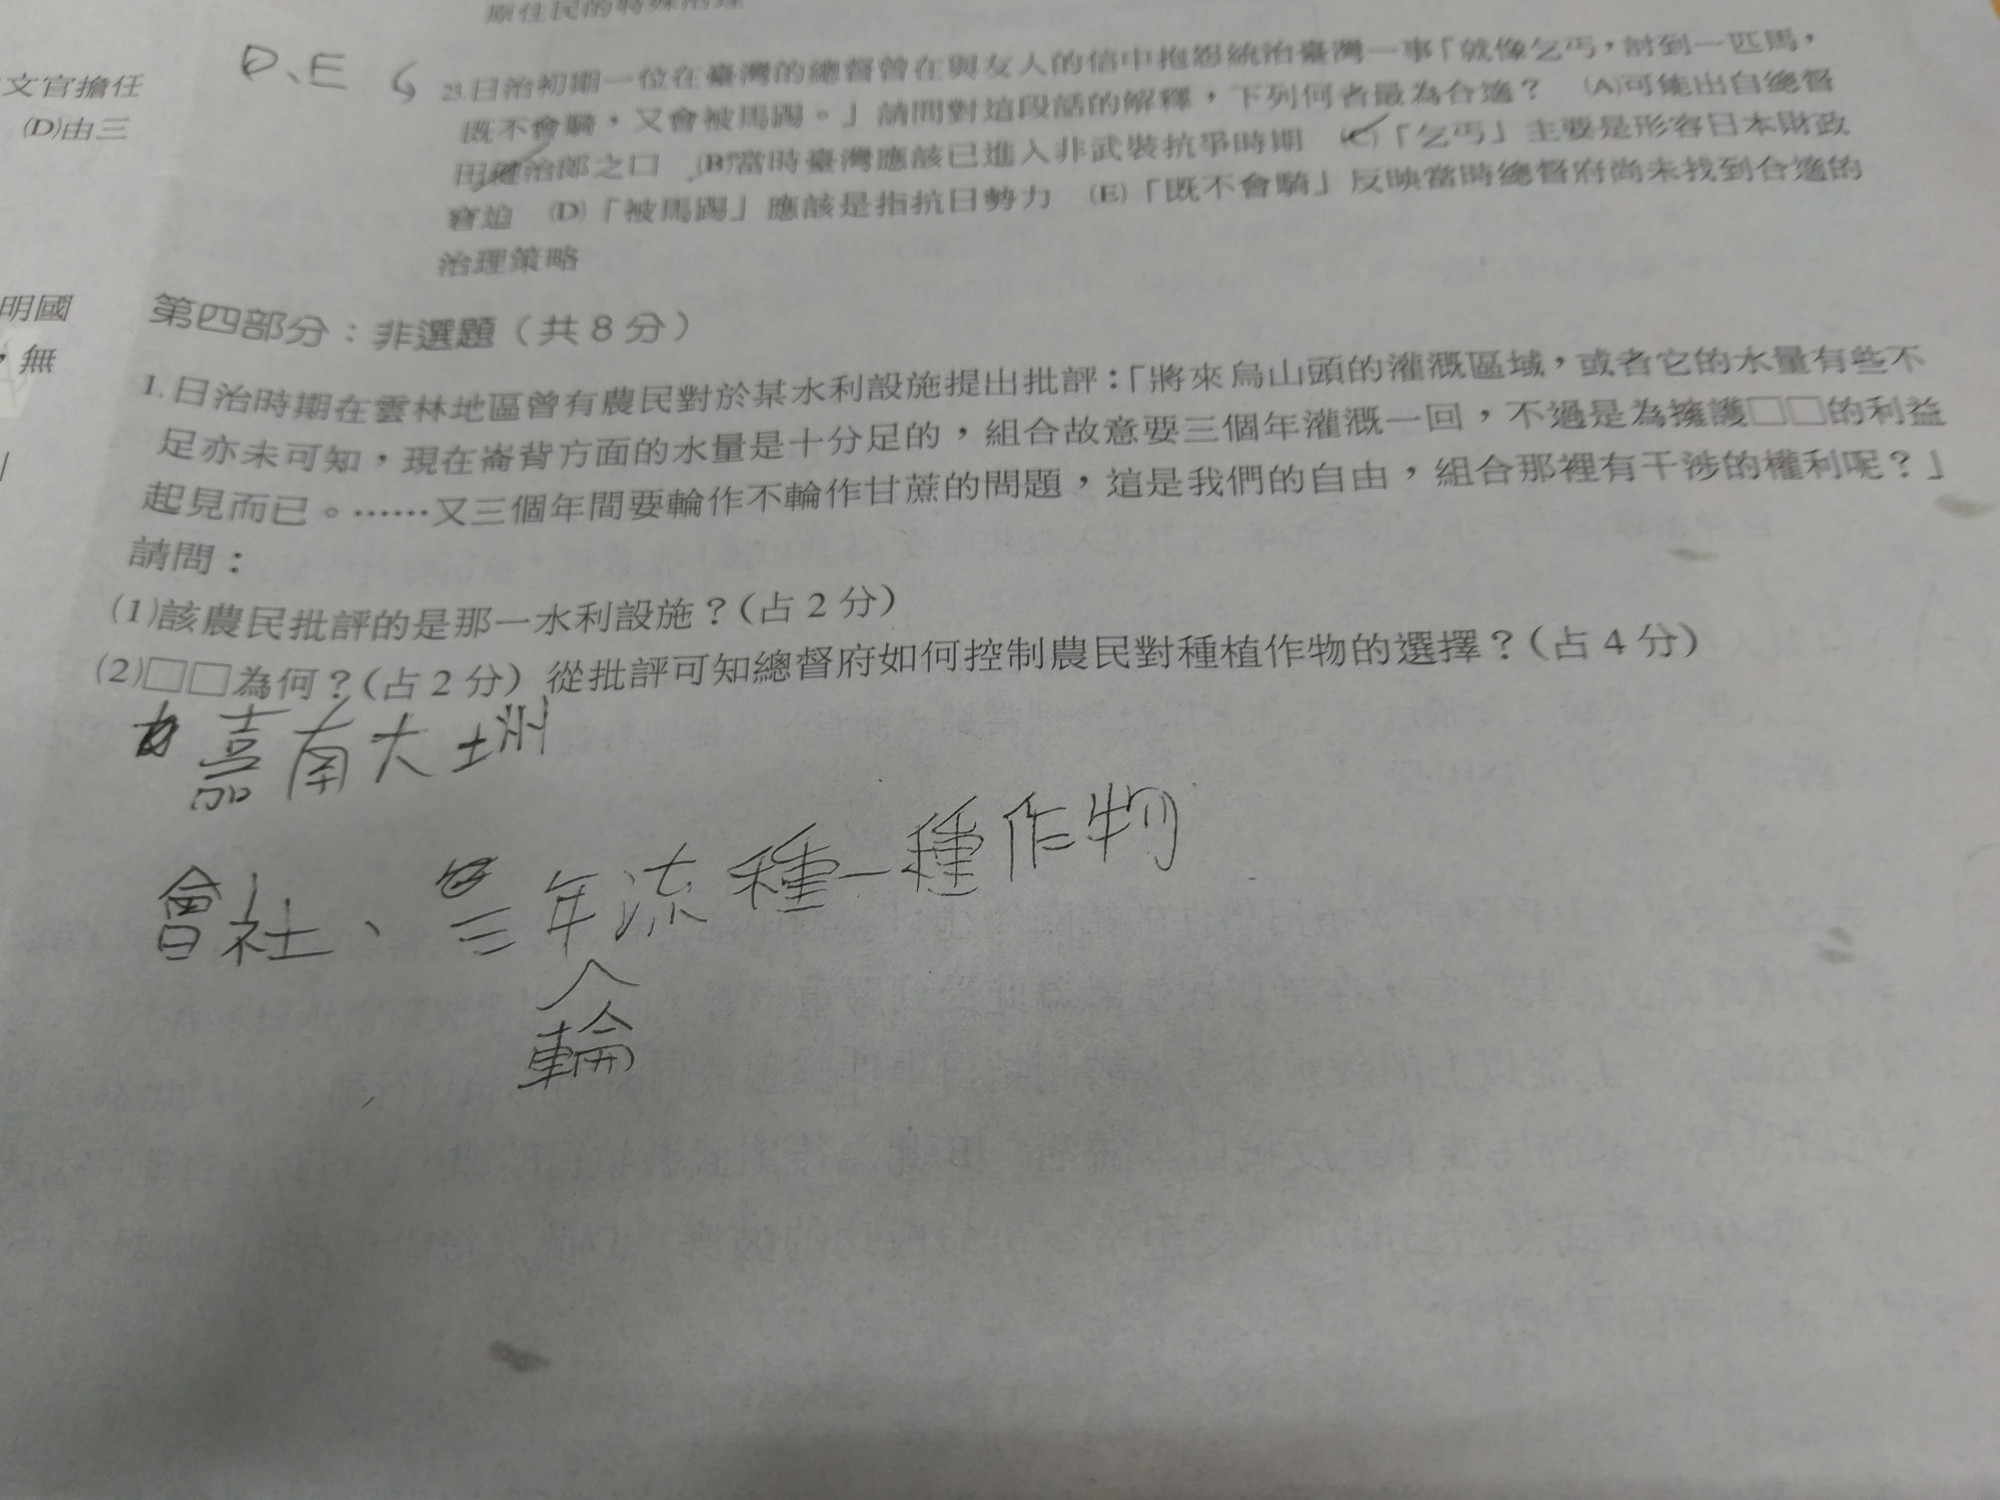 原住民的特殊治理
文官擔任
(D)由三
明國
，無
D、E
23.日治初期一位在臺灣的總督曾在與友人的信中抱怨統治臺灣一事「就像乞丐，討到一匹馬，
既不會騎，又會被馬踢。」請問對這段話的解釋，下列何者最為合適？ (A)可能出自總督
田健治郎之口 (B)當時臺灣應該已進入非武裝抗爭時期 (C)「乞丐」主要是形容日本財政
窘迫 (D)「被馬踢」應該是指抗日勢力 (E)「既不會騎」反映當時總督府尚未找到合適的
治理策略
第四部分：非選題（共8分）
1.日治時期在雲林地區曾有農民對於某水利設施提出批評：「將來烏山頭的灌溉區域，或者它的水量有些不
足亦未可知，現在崙背方面的水量是十分足的，組合故意要三個年灌溉一回，不過是為擁護□□的利益
起見而已。……又三個年間要輪作不輪作甘蔗的問題，這是我們的自由，組合那裡有干涉的權利呢？」
請問：
(1)該農民批評的是那一水利設施？(占2分)
(2)□□為何？(占2分) 從批評可知總督府如何控制農民對種植作物的選擇？(占4分)
嘉南大圳
會社、三年流種一種作物
輪